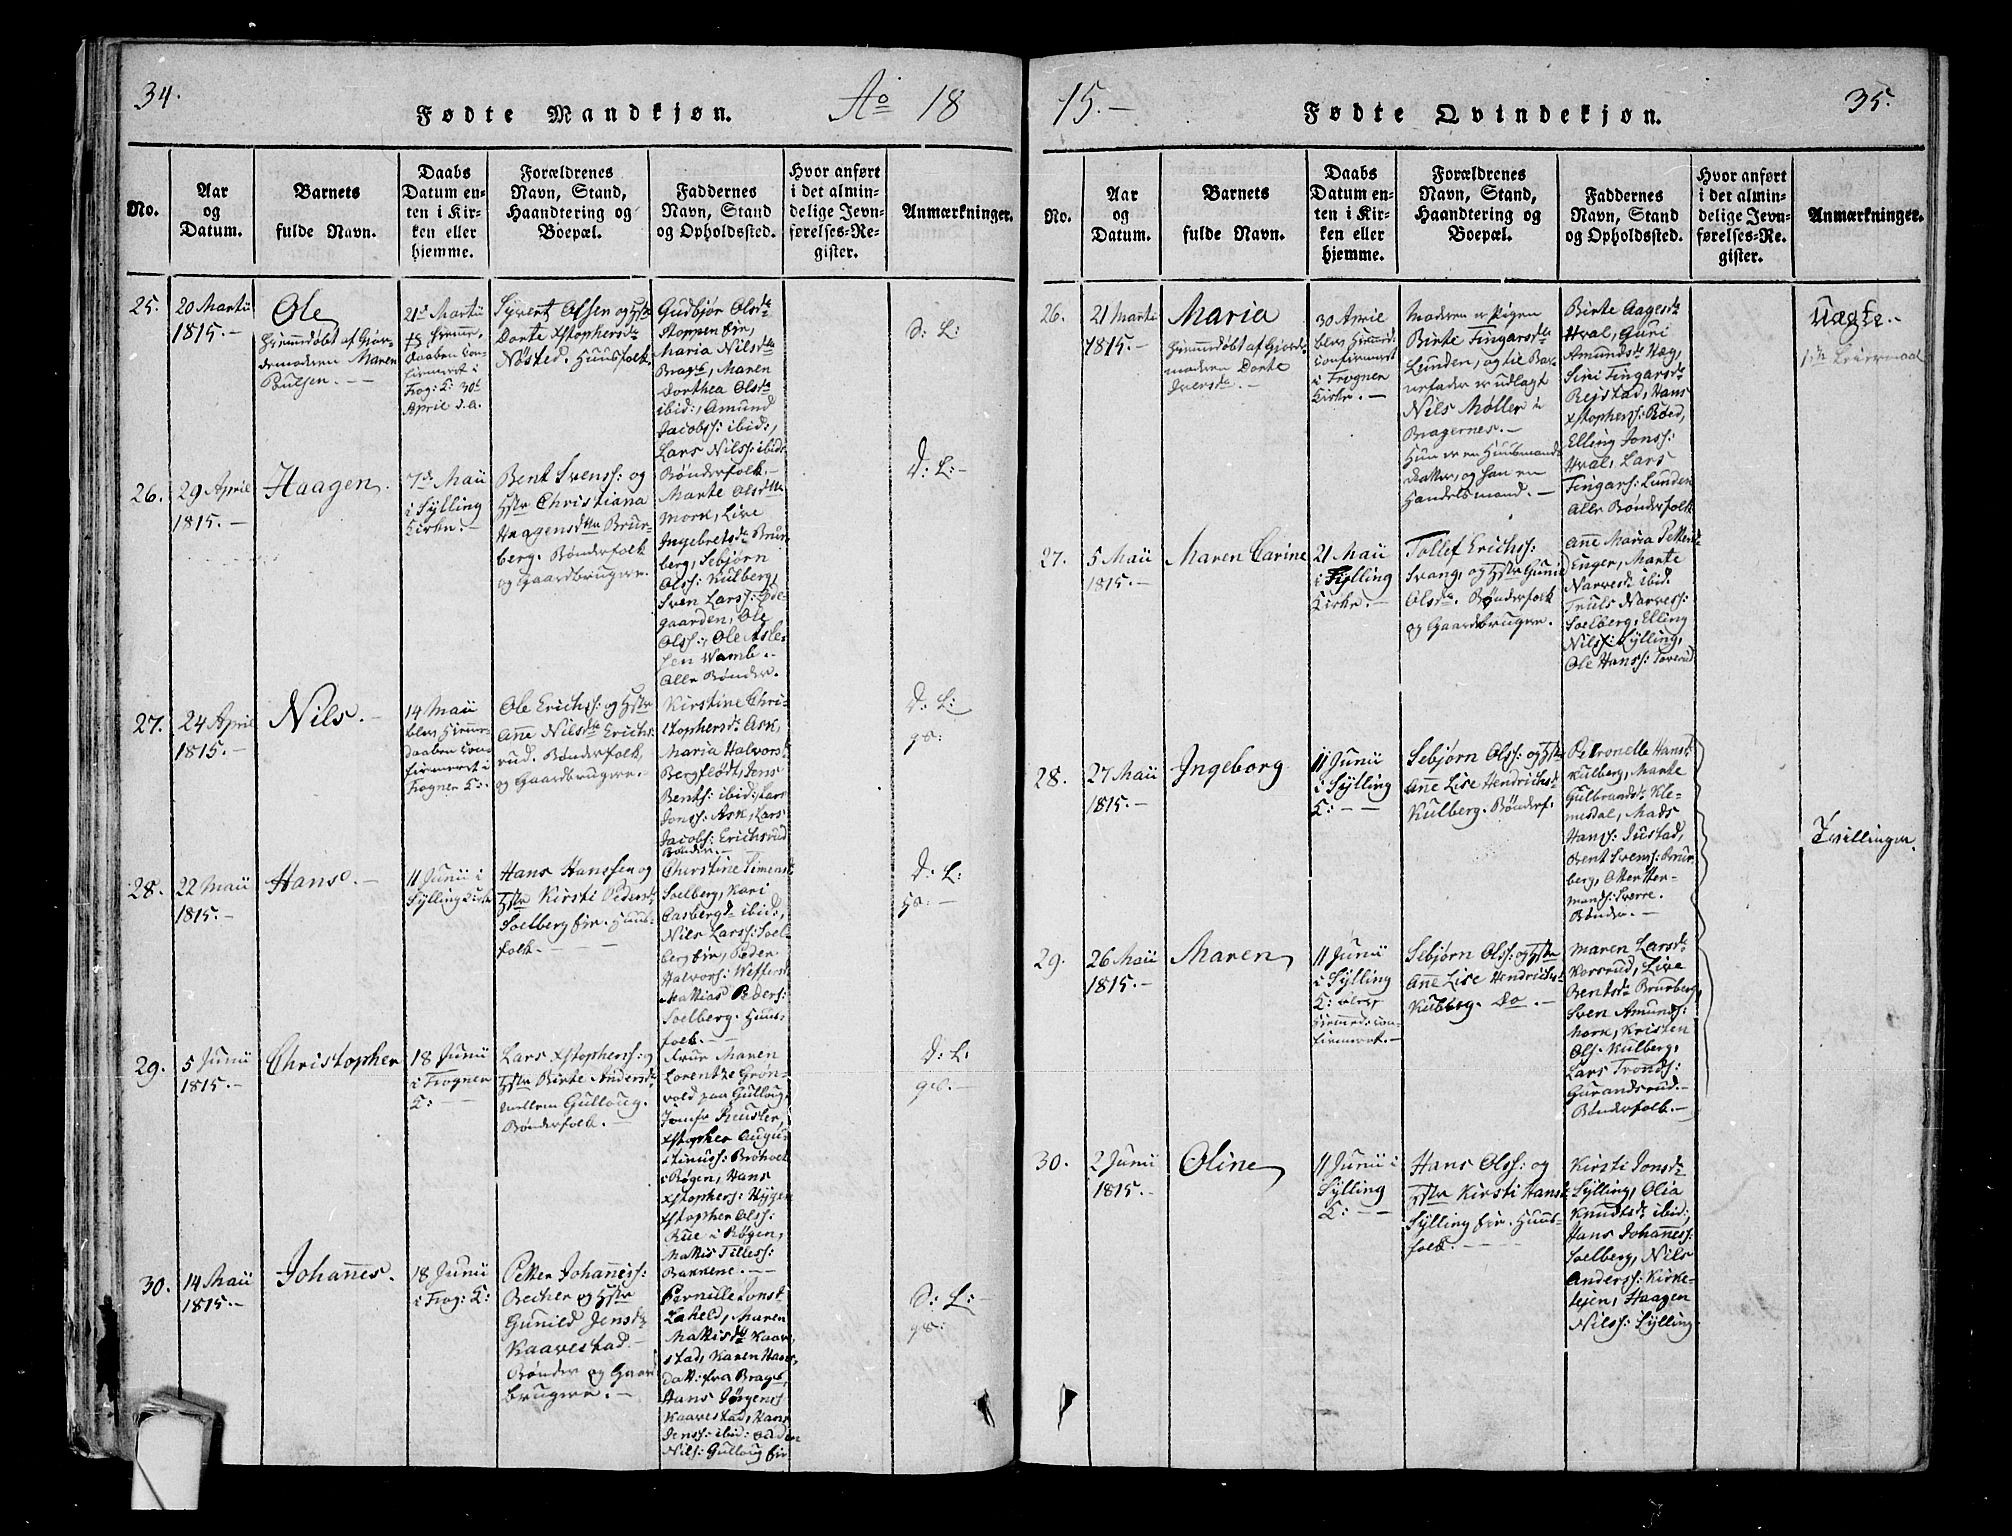 34.
Fødte Mandkjøn.
Ao 18
No.
Aar
og
Datum.
Barnets
fulde Navn.
Daabs
Datum en-
ten i Kir-
ken eller
hjemme.
Forældrenes
Navn, Stand,
Haandtering og
Boepæl.
Faddernes
Navn, Stand
og Opholdssted.
Hvor anført
i det almin-
delige Jevn-
førelses-Re-
gister.
Anmærkninger.
25.
20 Martii
1815.-
Ole
Hiemmedøbt af Gior-
demoderen Maren
Paulsen. -
21d Martii
Daaben con-
firmeret i
Frog: K: 30d
April d.a.
Syvert Olssen og Hstr
Dorte Xstophersda
Nøsted. Huusfolk.
Gudbjør Olsda
Stoppen Eir,
Maria Nilsda
Brag:, Maren
Dorthea Olsda
ibid:, Amund
Jacobss: ibid:,
Lars Nilss: ibid:
Bønderfolk.-
D: L:
26.
29 April
1815.-
Haagen.
7de Maii
i Sylling
Kirke.-
Bent Svenss: og
Hstr Christiana
Haagensdtr Brur-
berg. Bønderfolk
og Gaardbrugere.
Marte Olsdtr
Mork, Live
Ingebretsda Brur-
berg, Sebjørn
Olss: Kulberg,
Sven Larss: Øde-
gaarden, Ole
Olss:, Ole Asle-
sen Wamb.-
Alle Bønder.
D: L:-
27.
24 April
1815.-
Nils.-
14 Maii
blev Hiemme-
daaben con-
firmeret i
Frogner K:
Ole Erichss: og Hstr
Anne Nilsda Erichs-
rud. Bønderfolk
og Gaardbrugere.-
Kirstine Chri-
stophersd: Ask,
Maria Halvorsd:
Bergflødt, Jens
Bentss: ibid:, Lars
Jonss: Ask, Lars
Jacobss: Erichsrud
Bønder.-
D: L:
28.
22 Maii
1815.-
Hans.-
11 Junii i
Sylling Kirke
Hans Hanssen og
Hstr Kirsti Pedersd:
Solberg Eir. Huus-
folk.-
Christine Simensd:
Solberg, Kari
Casbergd: ibid:,
Nils Larss: Sol-
berg Eir, Peder
Halvors: Weffers:
Mathias Peders:
Solberg. Huus-
folk.-
D: L:
29.
5 Junii
1815.-
Christopher
18 Junii
i Frogner
K:
Lars Xstophers: og
Hstr Birte Andersd:
mellem Gulloug.
Bønderfolk.-
Frue Maren
Lorentze Grøn-
vold paa Gulloug,
Jomfr Reuster,
Xstopher Augu-
stinuss: Brøhvel
i Røgen, Hans
Xstophers: Hygen,
Xstopher Olss:
Rue i Røgen,
Mathis Tilless:
Bakkene.-
D: L:
30.
14 Maii
1815.-
Johannes.
18 Junii
i Frog: K:
Petter Johaness:
Becher og Hstr
Gunild Jensda
Kaavestad
Bønder og Gaard-
brugere.-
Pernille Jonsd:
Zakeld, Maren
Mathisda Kaave-
stad, Karen Haavs-
datt: fra Brag:,
Hans Jørgenss:
Kaavestad, Hans
Jenss: ibid:
Nils: Gulloug Eir
D: L:
15.-
Fødte Qvindekjøn.
35.
No.
Aar
og
Datum.
Barnets
fulde Navn.
Daabs
Datum en-
ten i Kir-
ken eller
hjemme.
Forældrenes
Navn, Stand,
Haandtering og
Boepæl.
Faddernes
Navn, Stand
og Opholdssted.
Hvor anført
i det almin-
delige Jevn-
førelses-Re-
gister.
Anmærkninger.
26.
21 Marti
1815.-
Maria
Hiemmedøbt af Giorde-
moderen Dorte
Iversda.-
30 April
blev Hiemd:
confirmeret
i Frogner
Kirke.-
Moderen er Pigen
Birte Fingarsda
Lunden, og til Bar-
nefader er udlagt
Nils Møller i
Bragernes.-
Hun er en Huusmands
datter, og han en
Handelsmand.-
Birte Aagesda
Hval, Guri
Amundsda Hæg,
Siri Fingarsda
Rejstad, Hans
Xstophers: Roed,
Elling Jonss:
Hval, Lars
Fingarss: Lunden
Alle Bønderfolk
Uægte.
1ste Leiermaal
27.
5 Maii
1815.-
Maren Carine
21 Maii
i Sylling
Kirke.-
Tollef Erichss:
Svang, og Hstr Gunild
Olsda. Bønderfolk
og Gaardbrugere.
Anne Maria Pettersd:
Enger, Marte
Narvesd: ibid:
Truls Narvess:
Soelberg, Elling
Nilss: Sylling,
Ole Hanss: Toverud
28.
27 Maii
1815.-
Ingeborg
11 Junii
i Sylling
K:
Sebjørn Olss: og Hstr
Anne Lise Hendrichsd:
Kulberg. Bønderf:
Petronelle Hansd:
Kulberg, Marte
Gulbrandsd: Kle-
mesdal, Mads
Hanss: Justad,
Bent Svenss: Brur-
berg, Otter Her-
mands: Sverre.
Bønder.-
Tvillinger.
29.
26 Maii
1815.-
Maren
11 Junii
i Sylling
K: blev
Hiemmed: con-
firmeret.-
Sebjørn Olss: og Hstr
Anne Lise Hendrichsd:
Kulberg. Do.-
Maren Larsda
Korsrud, Live
Bentsda Brurberg,
Sven Amunds:
Mork, Kristen
Ols. Kulberg,
Lars Tronds:
Gurandsrud.-
Bønderfolk.-
30.
2 Junii
1815.-
Oline
11 Junii i
Sylling
K:
Hans Olss: og
Hstr Kirsti Hansd:
Sylling Eir. Huus-
folk.-
Kirsti Jonsda
Sylling, Olia
Knudtsd: ibid:,
Hans Johaness:
Solberg, Nils
Anderss: Kirke-
tejen, Haagen
Nilss: Sylling